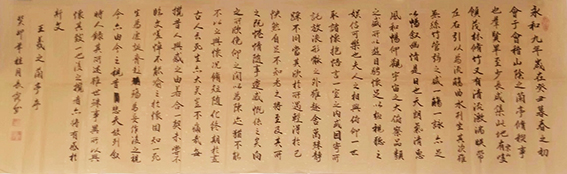 永和九年歲在癸丑暮春之初
會于會稽山陰之蘭亭脩禊事
也羣賢畢至少長咸集此地有崇山峻
領茂林脩竹又有清流激湍暎帶
左右引以為流觴曲水列坐其次雖
無絲竹管絃之盛一觴一詠亦足
以暢敘幽情是日也天朗氣清惠
風和暢仰觀宇宙之大俯察品類
之盛所以遊目騁懷足以極視聽之
娛信可樂也夫人之相與俯仰一世
或取諸懷抱悟言一室之內或因寄所
託放浪形骸之外雖趣舍萬殊靜
躁不同當其欣於所遇蹔得於己
快然自足不知老之將至及其所
之既惓情隨事遷感慨係之矣向
之所欣俛仰之閒以為陳迹猶不能
不以之興懷況脩短隨化終期於盡
古人云死生亦大矣豈不痛哉每
攬昔人興感之由若合一契未嘗不
臨文嗟悼不能喻之於懷固知一死
生為虛誕齊彭殤為妄作後之視
今亦由今之視昔悲夫故列敘
時人錄其所述雖世殊事異所以興
懷其致一也後之攬者亦將有感於
斯文
王羲之蘭亭序
癸卯年桂月